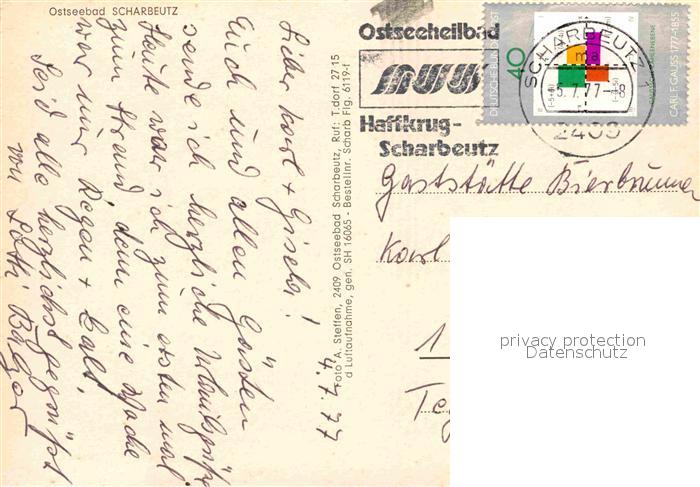 Ostseebad SCHARBEUTZ
4.7.77
Lieber Karl + Gisela!
Euch und allen Gästen
sende ich herzliche Urlaubsgrüße
Heute war ich zum ersten mal
zum Strand, denn eine Woche
war nur Regen + kalt
Seid alle herzlichst gegrüßt
von Lothi
Foto A. Steffen, 2409 Ostseebad Scharbeutz, Ruf: T.dorf 27 15
d Luftaufnahme, gen. SH 16065 - Bestellnr. Scharb Flg. 6119-f
Ostseeheilbad
Haffkrug-
Scharbeutz
DEUTSCHE BUNDESPOST
40
CARL F. GAUSS 1777-1855
SCHARBEUTZ 1
ma
-5.7.77-8
2409
Gaststätte Bierbrunnen
Karl
1
privacy protection
Datenschutz